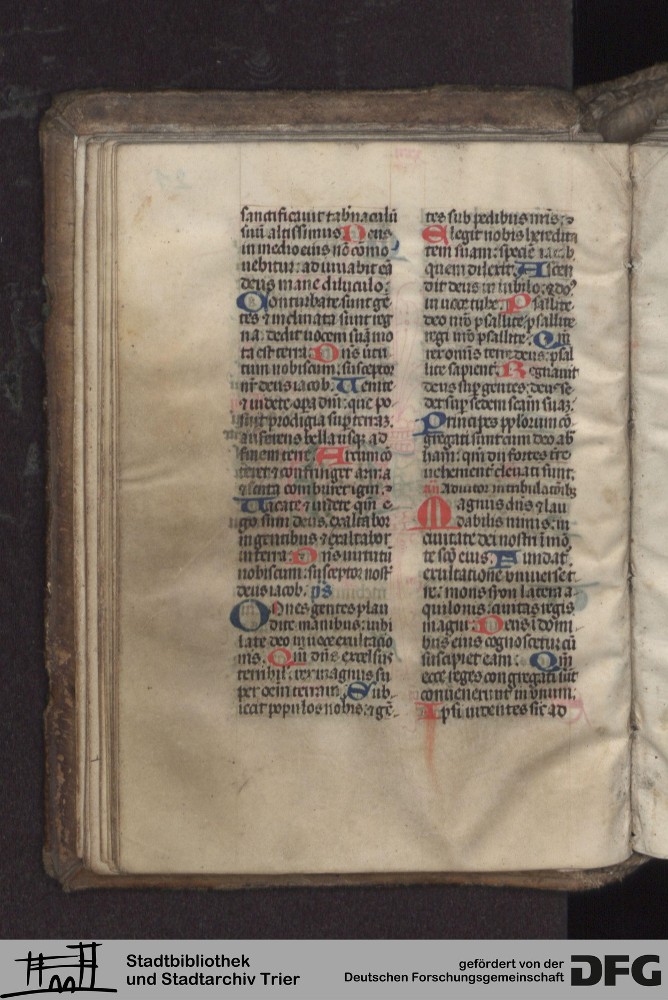 sanctificauit tab̄naculū
suū altissimus Deus
in medio eius nō como
uebitur: adiuuabit eā
deus mane diluculo:
Conturbate sunt gē
tes ⁊ inclinata sunt reg
na: dedit uocem suā mo
ta est terra: Dn̄s uirtu
tum nobiscum: susceptor
nr̄ deus iacob. Uenite
⁊ uidete opa dn̄i: que po
suit prodigia sup terrā:
auferens bella usq; ad
finem terre Arcum cō
teret ⁊ confringet arma
⁊ scuta comburet igni:
Uacate ⁊ uidete qm̄ e
go sum deus, exaltabor
in gentibus ⁊ exaltabor
in terra: Dn̄s uirtutū
nobiscum: susceptor nost̄
deus iacob. p̄s
Omnes gentes plau
dite manibus: iubi
late deo in uoce exultatio
nis. Qm̄ dn̄s excelsus
terribil: rex magnus su
per oēm terram. Sub
iecit populos nobis: ⁊ gē
tes sub pedibus nr̄is:
Elegit nobis heredita
tem suam: speciē iacob
quem dilexit. Ascen
dit deus in iubilo: ⁊ do
in uoce tube. Psallite
deo nr̄o psallite, psallite
regi nr̄o psallite. Qm̄
rex omnis terre deus: psal
lite sapient̄. Regnauit
deus sup gentes: deus se
det sup sedem scām suā:
Principes pplorum cō
gregati sunt cum deo ab
hām: qm̄ dii fortes tr̄e
uehementer eleuati sunt.
an̄ Adiutor in tribulatōnib;
Magnus dn̄s ⁊ lau
dabilis nimis: in
ciuitate dei nostri ī mō
te scō eius. Fundat̄
exultatione uniuerse t̄
re: mons syon latera a
quilonis: ciuitas regis
magni: Deus ī domi
bus eius cognoscetur cū
suscipiet eam: Qm̄
ecce reges congregati sūt
conuenerunt in unum:
Ipsi uidentes sic ad
Stadtbibliothek
und Stadtarchiv Trier
gefördert von der
Deutschen Forschungsgemeinschaft
DFG